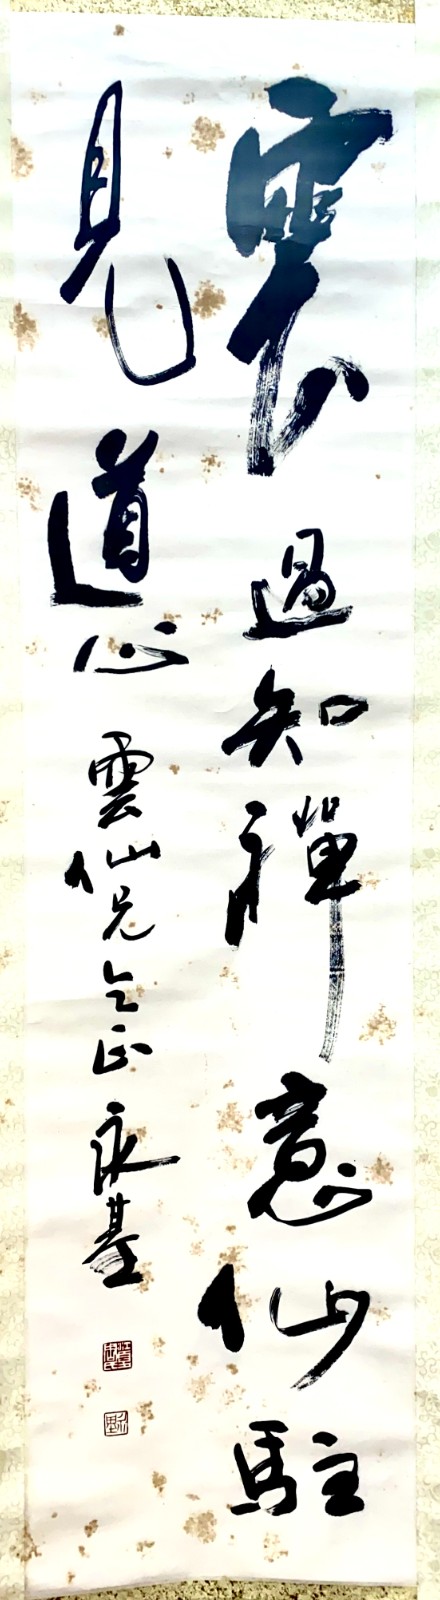 雲過知禪意仙駐
見道心 雲仙兄乞正 永基